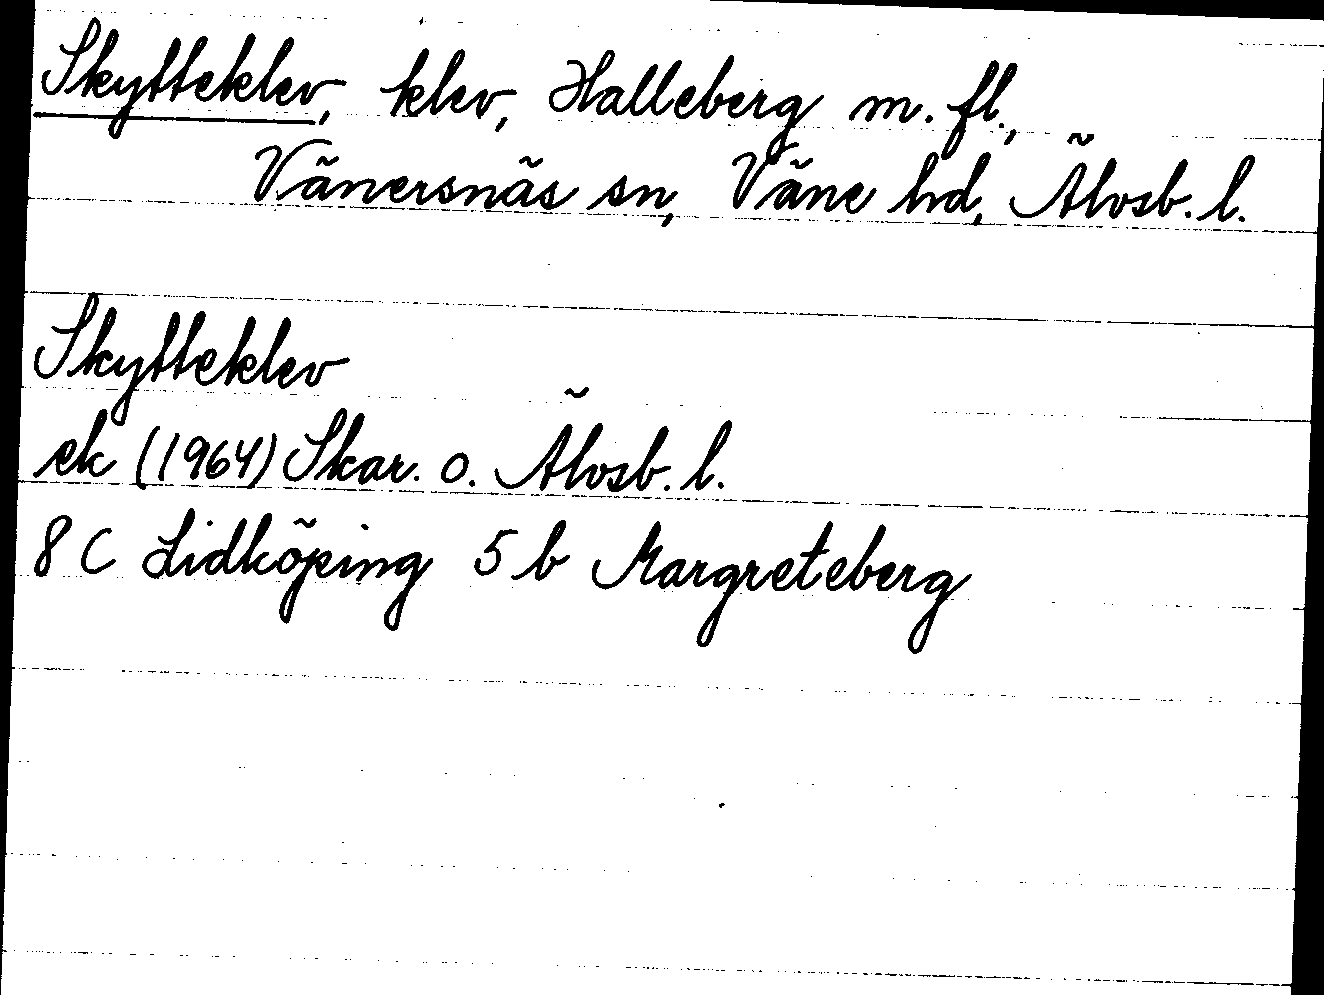 Skytteklev, klev, Halleberg m. fl.,
Vänersnäs sn, Väne hd, Älvsb. l.
Skytteklev
ek (1964) Skar. o. Älvsb. l.
8 C Lidköping 5 b Margreteberg